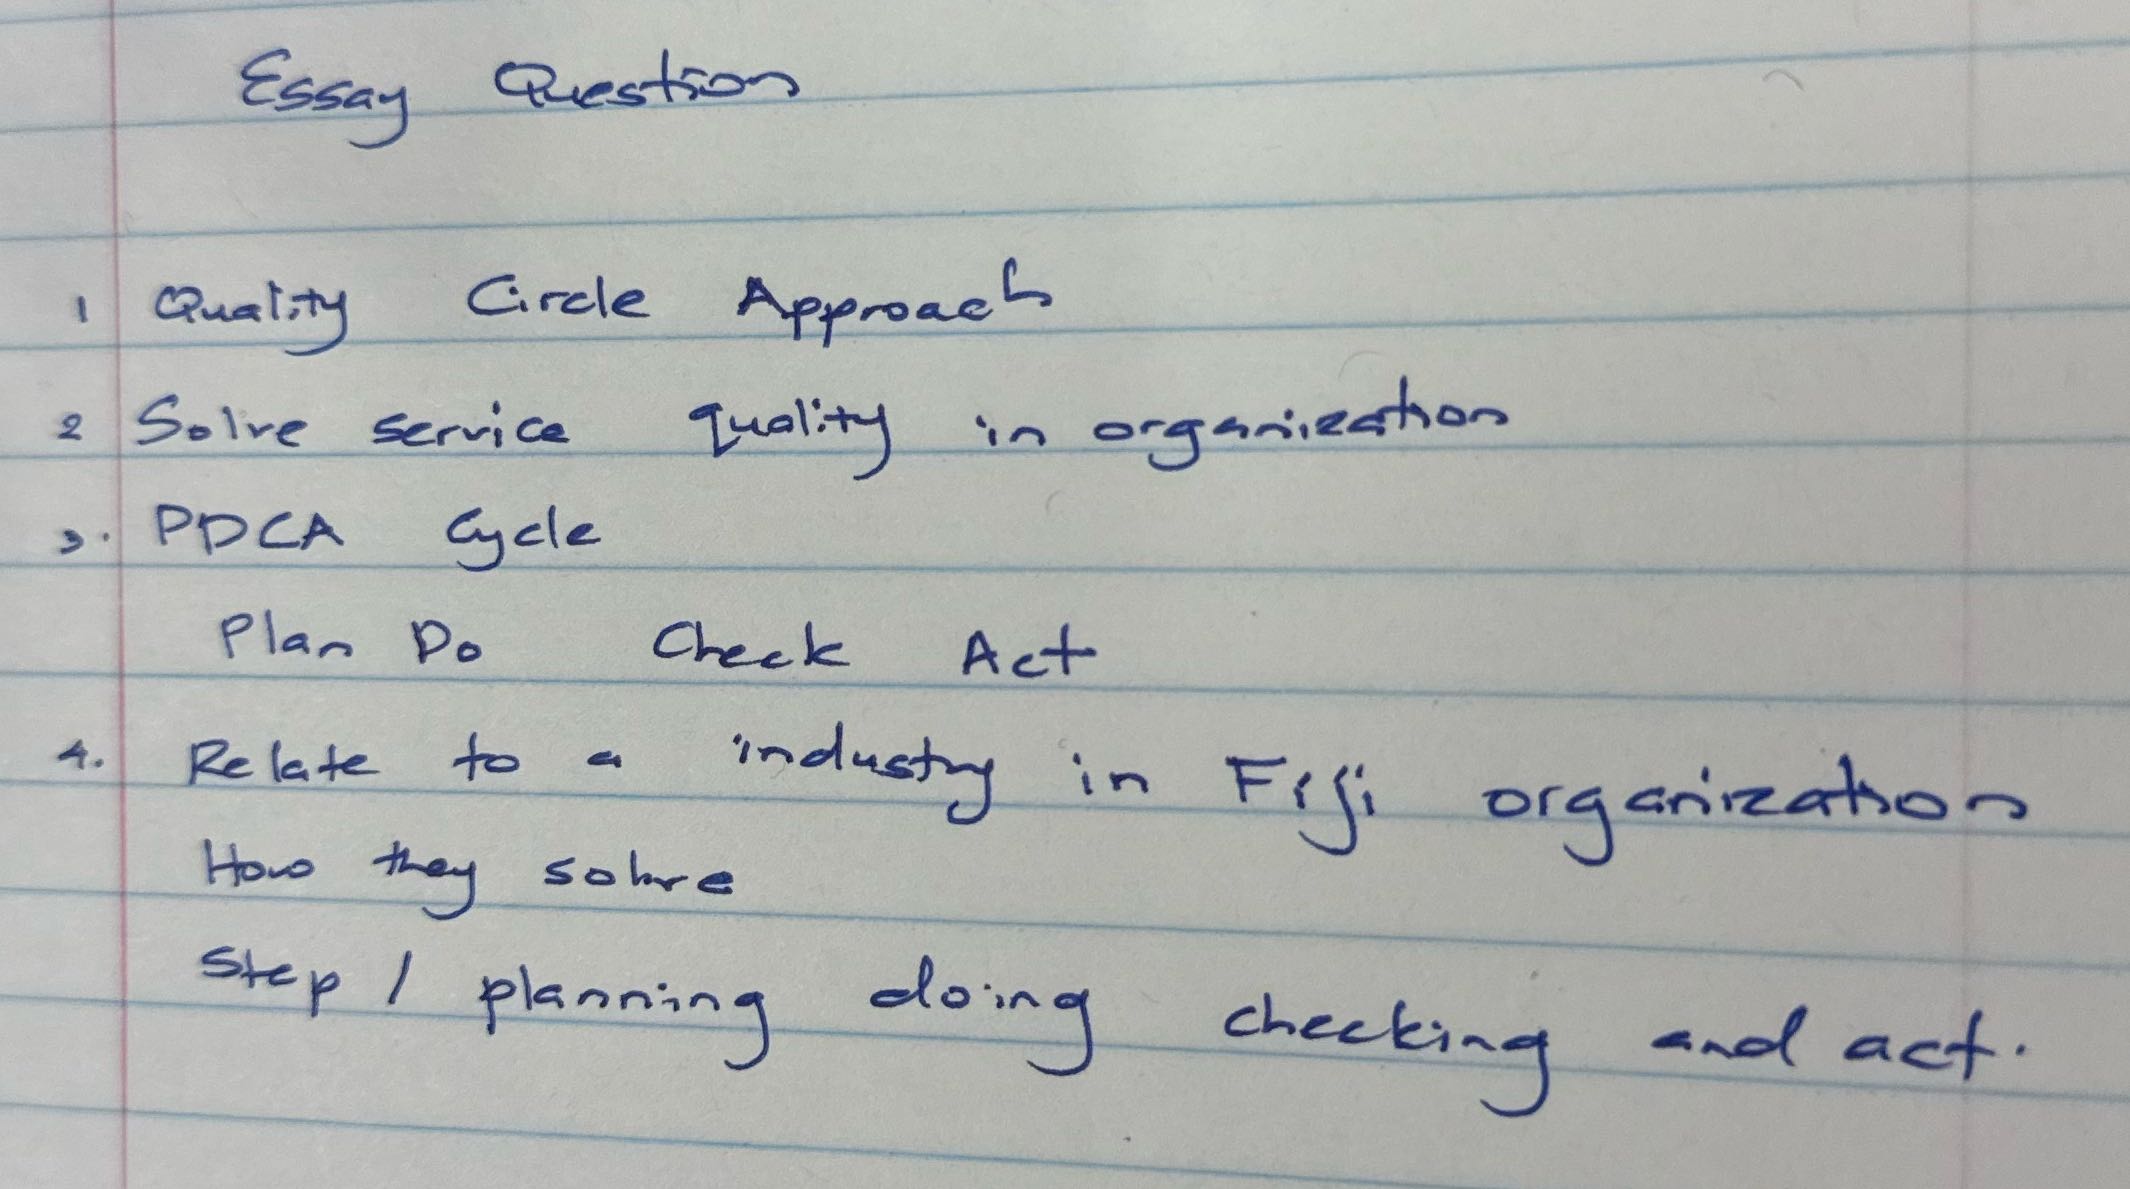 Essay Question
1 Quality Circle Approach
2 Solve service quality in organization
3. PDCA Cycle
Plan Do Check Act
4. Relate to a industry in Fiji organization
How they solve
Step 1 planning doing checking and act.